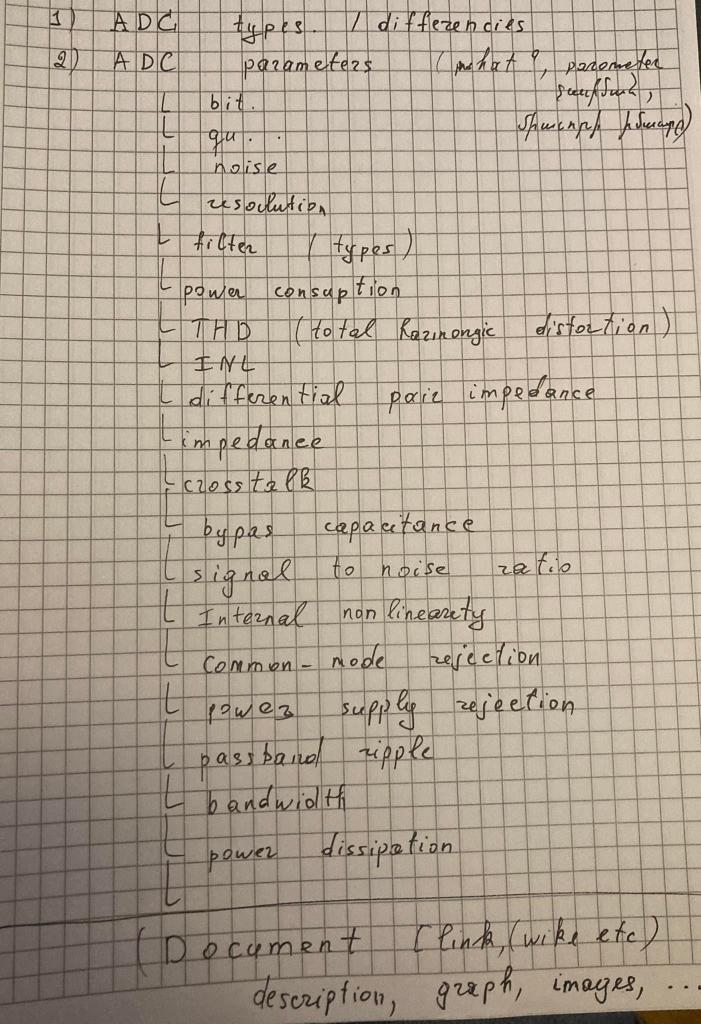 1) ADC types. / differencies
2) ADC parameters (what?, parometer
bit.
qu..
noise
resolution
filter (types)
power consuption
THD (total harmongic distortion)
INL
differential pair impedance
impedance
crosstalk
bypas capacitance
signal to noise ratio
Internal non linearety
Common-mode rejection
power supply rejection
passband ripple
bandwidth
power dissipation
(Document [link, (wike etc)
description, graph, images, ...